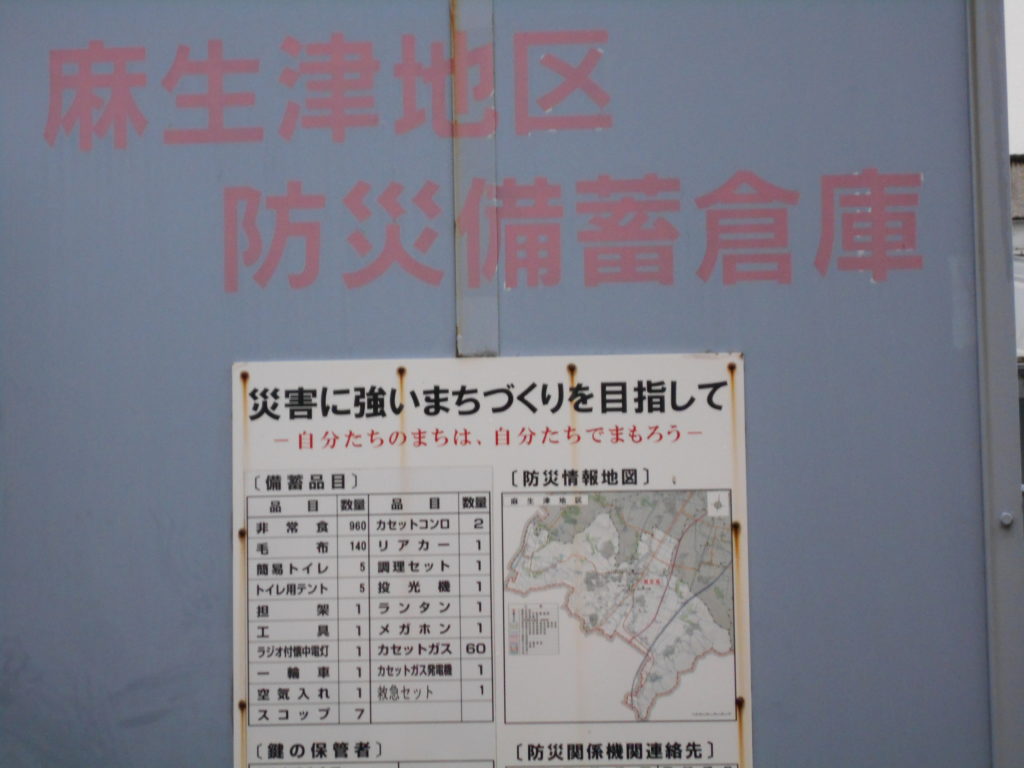 麻生津地区
防災備蓄倉庫
災害に強いまちづくりを目指して
－自分たちのまちは、自分たちでまもろう－
〔備蓄品目〕
品目 数量 品目 数量
非常食 960 カセットコンロ 2
毛布 140 リアカー 1
簡易トイレ 5 調理セット 1
トイレ用テント 5 投光機 1
担架 1 ランタン 1
工具 1 メガホン 1
ラジオ付懐中電灯 1 カセットガス 60
一輪車 1 カセットガス発電機 1
空気入れ 1 救急セット 1
スコップ 7
〔鍵の保管者〕
〔防災情報地図〕
麻生津地区
〔防災関係機関連絡先〕